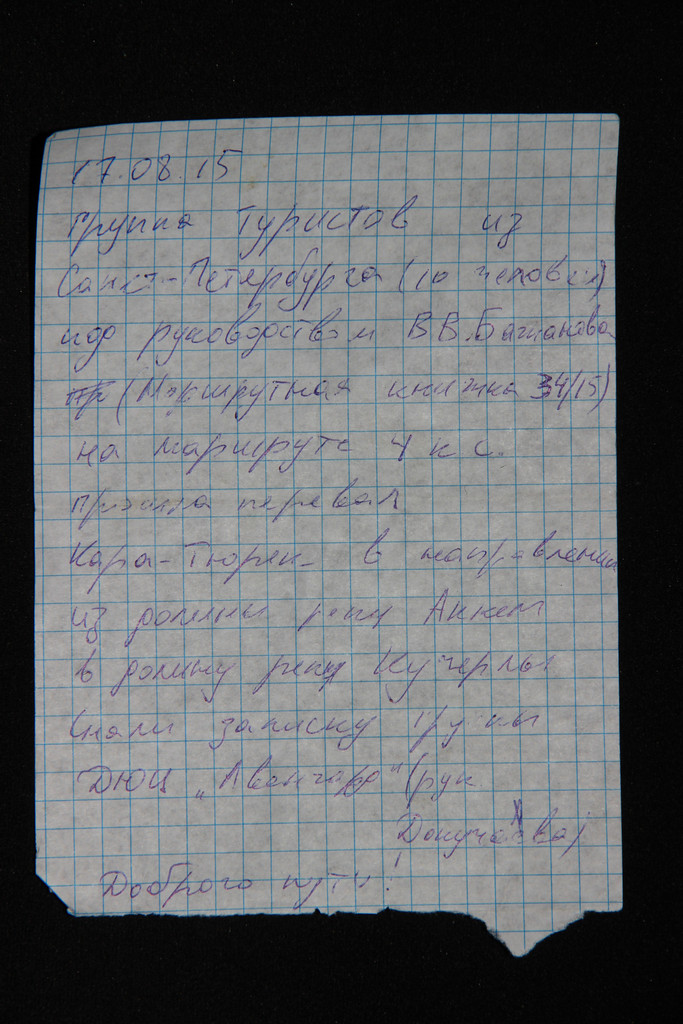 17.08.15
Группа туристов из
Санкт-Петербурга (10 человек)
под руководством В В.
(Маршрутная книжка 34/15)
на маршруте 4 к с.
прошла перевал
Кара-Тюрек в направлении
из долины реки Аккем
в долину реки Кучерлы
Сняли записку группы
ДЮЦ „Авангард" (рук
Докучаева)
Доброго пути!